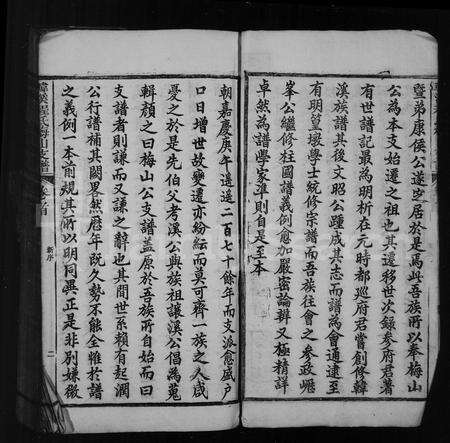 暨弟康侯公遂芝居於是焉吾族所以奉梅山
公為本支始遷之祖也其遷移世次錄參府君著
有世譜記最為明析在元時都巡府君嘗創修韓
溪族譜其後文昭公踵成其志而譜為會通逮至
有明篁墩學士統修宗譜而吾族往會之參政
峯公繼修柱國譜義例愈加嚴密論辨又極精詳
卓然為譜學家準則自是至本
朝嘉慶庚午邊逺二百七十餘年而支派愈盛戶
口日增世故變遷亦紛紜而莫可齊一族之人咸
憂之於是先伯父考溪公與族祖讓溪公倡為蒐
輯顏之曰梅山公支譜蓋原於吾族所自始而曰
支譜者則謙而又謙之辭也其間世系賴有起潤
公行譜補其闕畧然歷年既久勢不能全惟於譜
之義例一本前規其所以明同異正是非別嫌微
韓溪程氏梅山支譜
卷首
新序
二